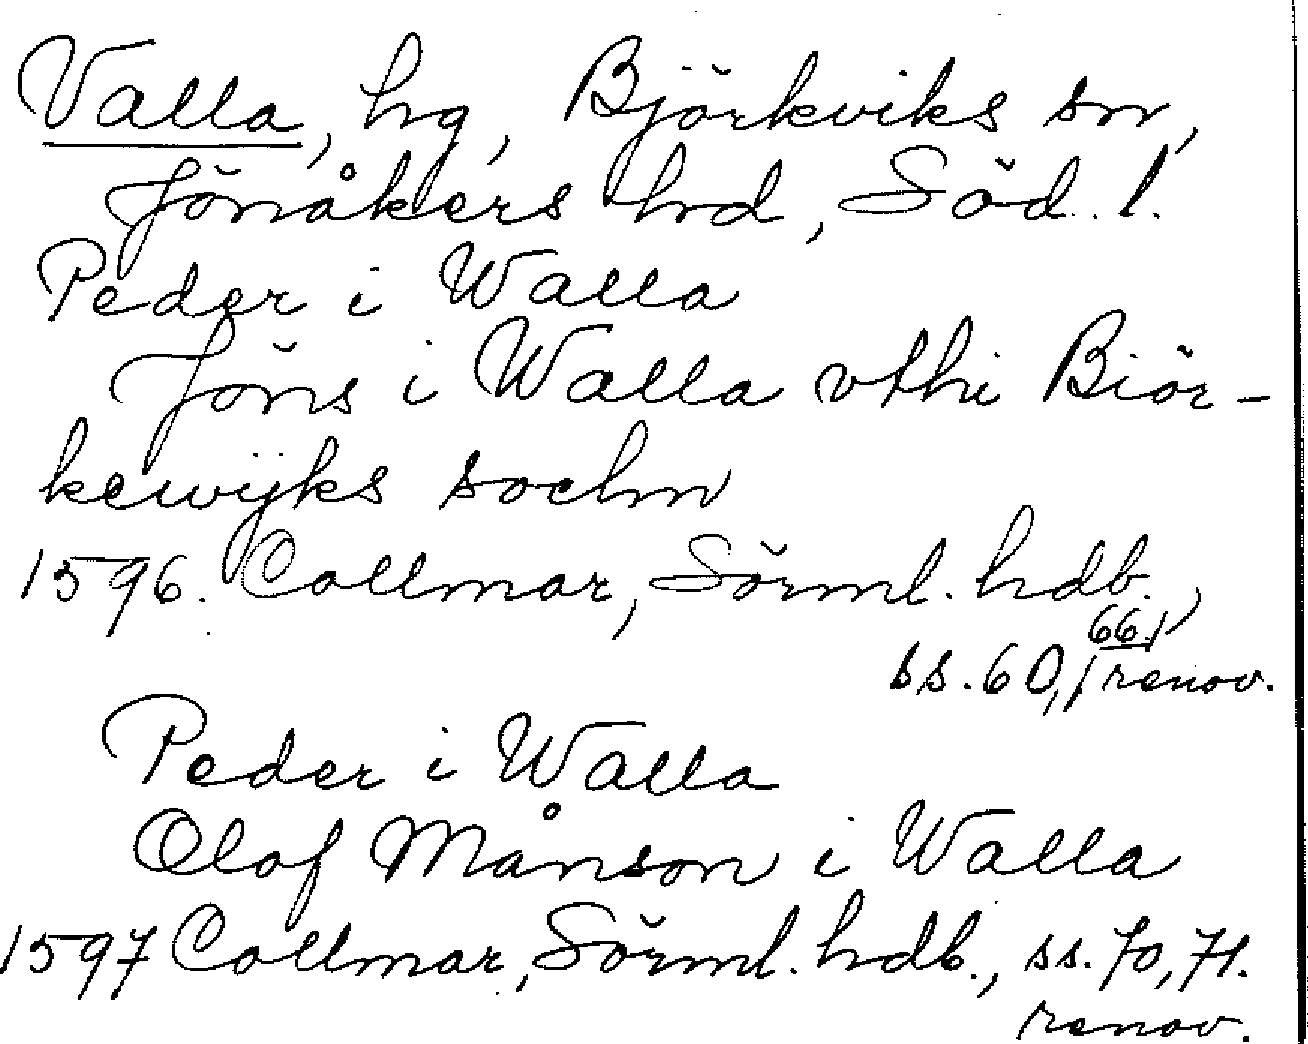 Valla, hg, Björkviks sn,
Jönåkers hd, Söd. l.
Peder i Walla
Jöns i Walla vthi Biör-
kewijks sochn
1596. Collmar, Sörml. hdb.,
ss. 60, 66, renov.
Peder i Walla
Olof Månson i Walla
1597 Collmar, Sörml. hdb., ss. 70, 71.
renov.